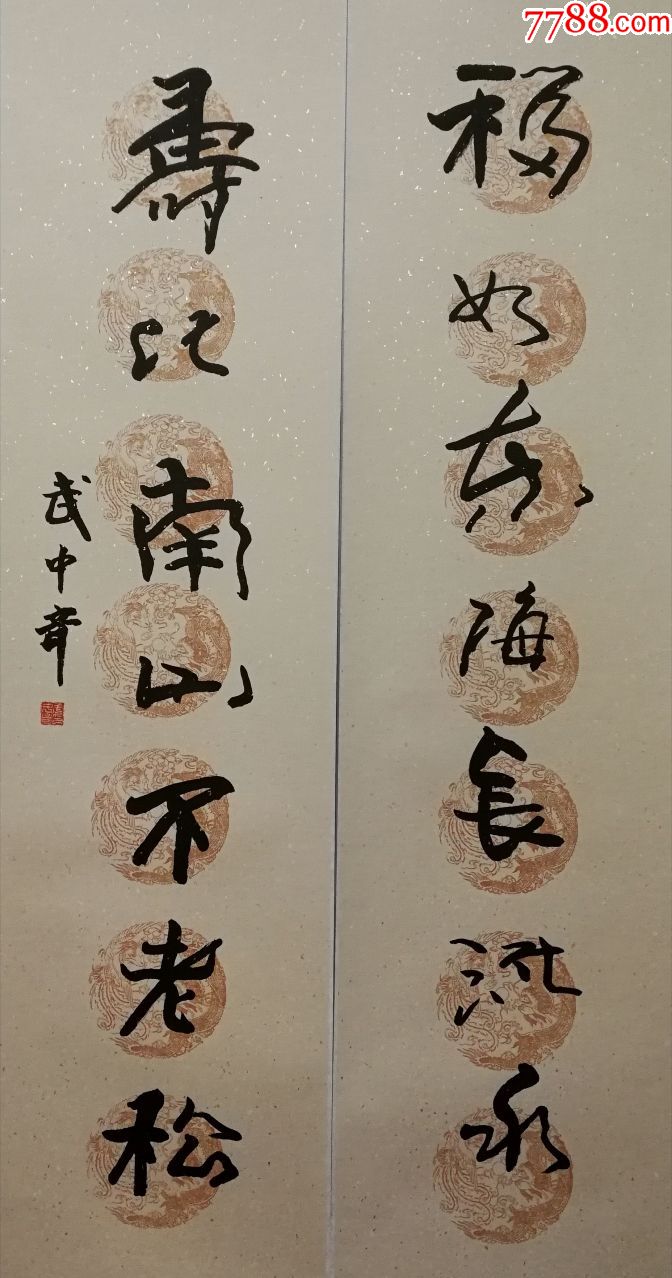 7788.com
福如东海长流水
寿比南山不老松
武中奇